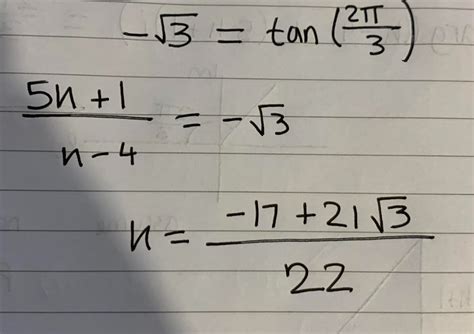 -√3 = tan(2π/3)
5n+1/n-4 = -√3
n = -17+21√3/22